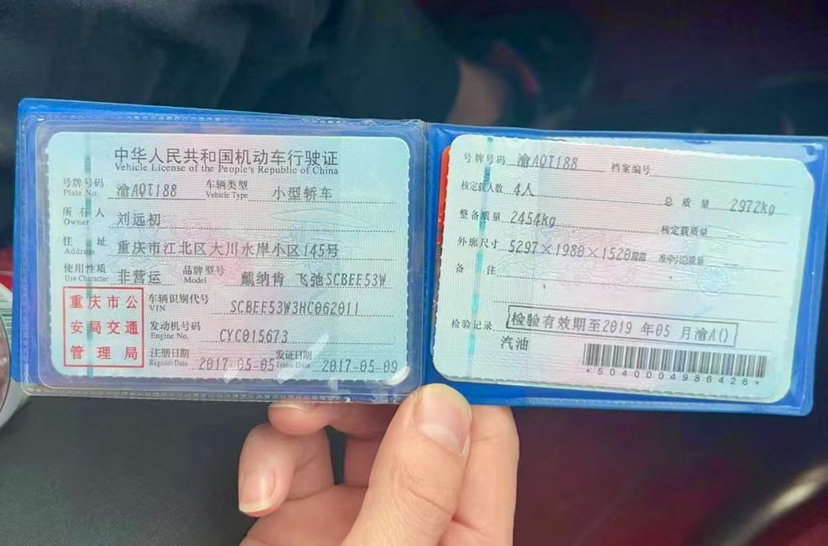 中华人民共和国机动车行驶证
Vehicle License of the People's Republic of China
号牌号码 渝AQT188 车辆类型 小型轿车
Plate No. Vehicle Type
所有人 刘远初
Owner
住址 重庆市江北区大川水岸小区145号
Address
使用性质 非营运 品牌型号 戴纳肯 飞弛SCBEE53W
Use Character Model
重庆市公安局交通管理局
车辆识别代号 SCBEE53W3HC062011
VIN
发动机号码 CYC015673
Engine No.
注册日期 2017-05-05 发证日期 2017-05-09
Register Date Issue Date
号牌号码 渝AQT188 档案编号
核定载人数 4人 总质量 2972kg
整备质量 2454kg 核定载质量
外廓尺寸 5297×1980×1520mm 准牵引总质量
备注
检验记录 检验有效期至2019年05月渝A()
汽油
*5040004986426*